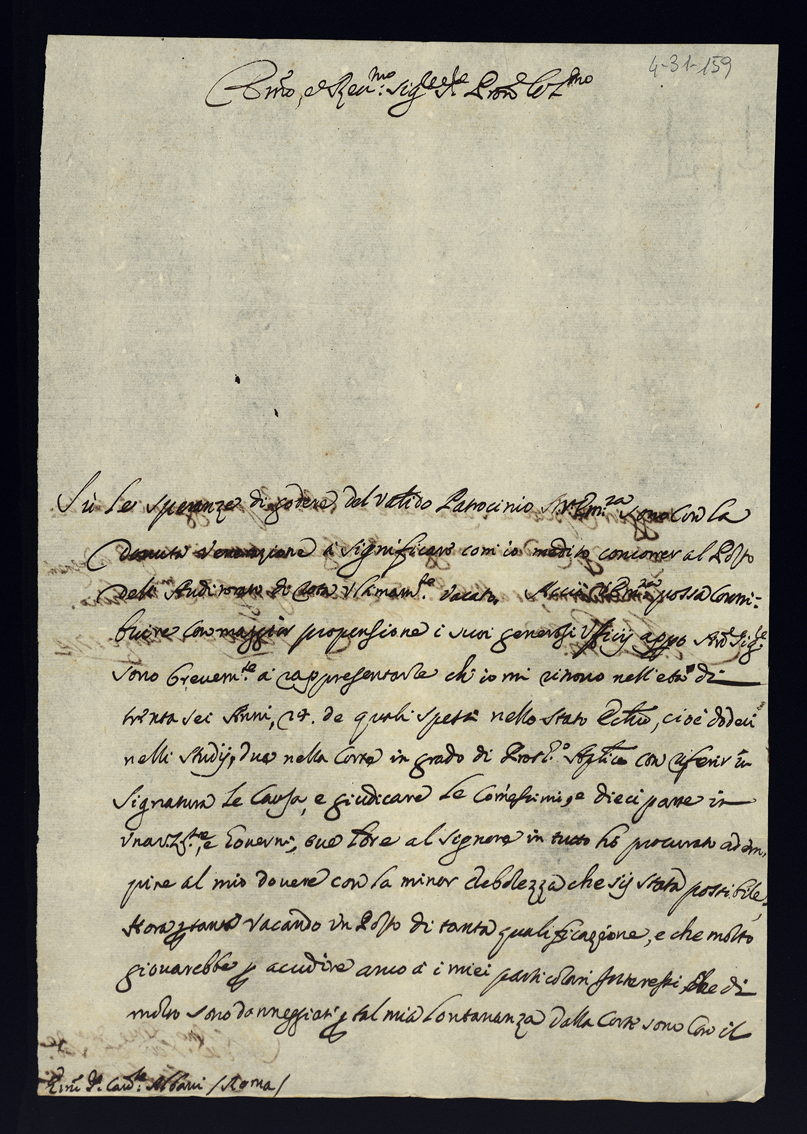 4-31-159
Em̃o, e Reu.mo Sig.re Sig.re Pron̄e Col.mo
Sù le speranze di godere del valido Patrocinio di V.Em.za sono con la
douuta venerazione à significare com'io medito concorrer al Posto
dell'Auditorato di Rota vltimam.te vacato. Acciò V.Em.za possa contri-
buire con maggior propensione i suoi generosi Vfficij appo
sono breuem.te à rappresentarle ch'io mi ritrouo nell'età di
trenta sei Anni, 14. de quali spesi nello stato Ecc̄o, cioè dodeci
nelli studij, due nella Corte in grado di Apl̄ico con riferir in
Signatura le Cause, e giudicare le Com̃issioni, e dieci parte in
e Gouerni, oue al Signore in tutto hò procurato adem-
pire al mio douere con la minor debolezza che sij stata possibile.
Hora ꝑtanto vacando vn Posto di tanta qualificazione, e che molto
giouarebbe ꝑ accudire anco à i miei particolari Interessi, che di
molto sono danneggiati ꝑ tal mia lontananza dalla Corte sono con il
Em̃o Sig. Card.le Albani /Roma/